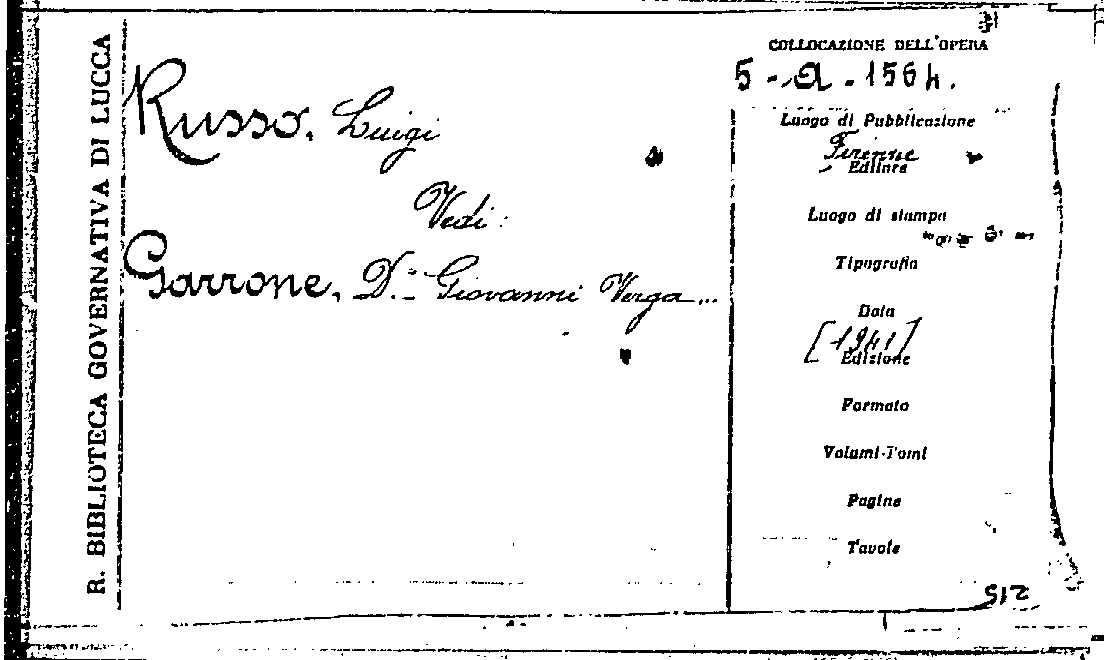 R. BIBLIOTECA GOVERNATIVA DI LUCCA
Russo, Luigi
Vedi:
Garrone, D.- Giovanni Verga...
COLLOCAZIONE DELL'OPERA
5 - a - 156 4.
Luogo di Pubblicazione
Firenze
Editore
Luogo di stampa
Tipografia
Data
[1941]
Edizione
Formato
Volumi-Tomi
Pagine
Tavole